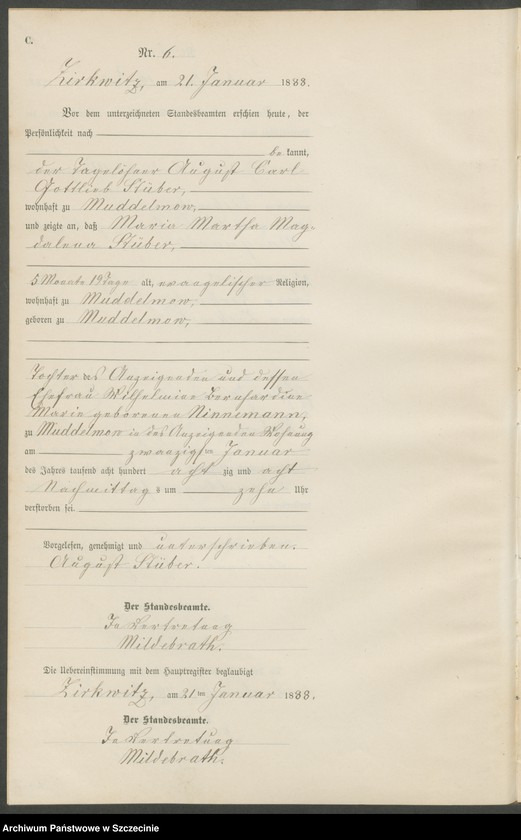 C.
Nr. 6.
Zirkwitz, am 21. Januar 1888.
Vor dem unterzeichneten Standesbeamten erschien heute, der
Persönlichkeit nach
be kannt,
der Tagelöhner August Carl
Gottlieb Stüber,
wohnhaft zu Muddelmow,
und zeigte an, daß Marie Martha Mag-
dalena Stüber,
5 Monate 19 Tage alt, evangelischer Religion,
wohnhaft zu Muddelmow,
geboren zu Muddelmow,
Tochter des Anzeigenden und dessen
Ehefrau Wilhelmine Bernhardine
Marie geborenen Ninnemann,
zu Muddelmow in des Anzeigenden Wohnung
am zwanzigsten Januar
des Jahres tausend acht hundert acht zig und acht
Nachmittag s um zehn Uhr
verstorben sei.
Vorgelesen, genehmigt und unterschrieben.
August Stüber.
Der Standesbeamte.
In Vertretung
Mildebrath.
Die Uebereinstimmung mit dem Hauptregister beglaubigt
Zirkwitz, am 21ten Januar 1888.
Der Standesbeamte.
In Vertretung
Mildebrath.
Archiwum Państwowe w Szczecinie